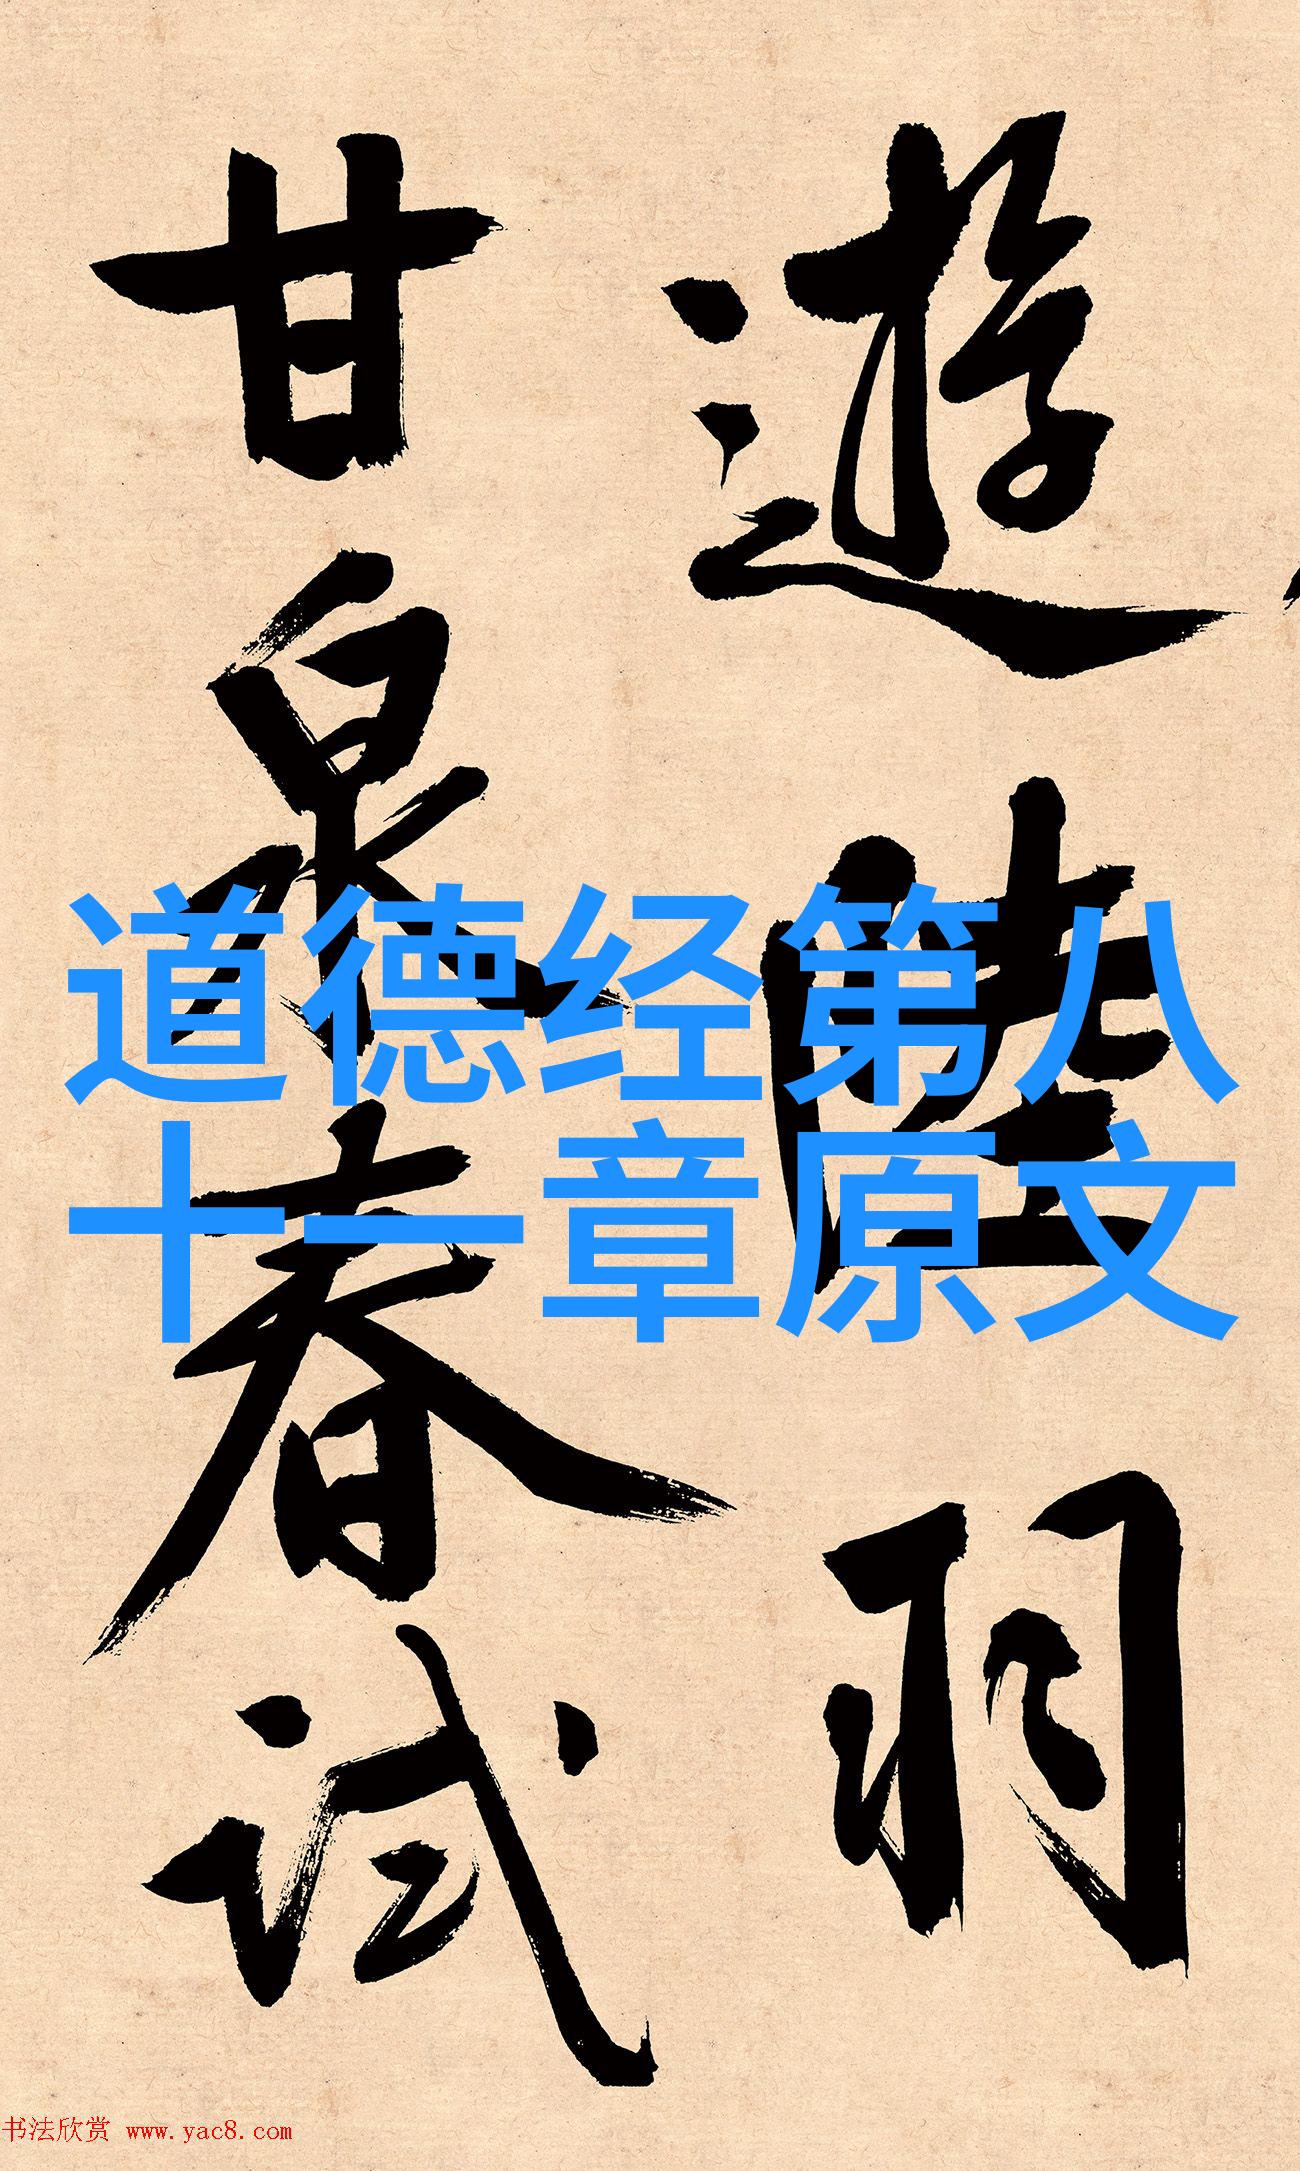 遊陸羽
甘泉春试
道德经第八
十一章原文
书法欣赏 www.yac8.com